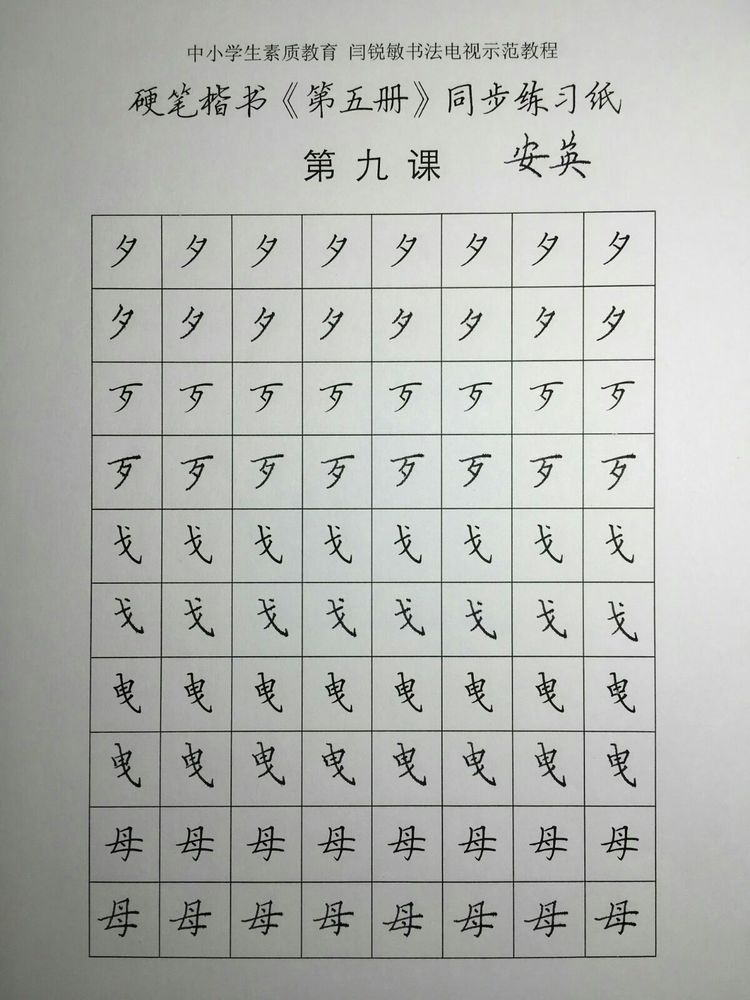 中小学生素质教育 闫锐敏书法电视示范教程
硬笔楷书《第五册》同步练习纸
第九课 安英
夕 夕 夕 夕 夕 夕 夕 夕
夕 夕 夕 夕 夕 夕 夕 夕
歹 歹 歹 歹 歹 歹 歹 歹
歹 歹 歹 歹 歹 歹 歹 歹
戈 戈 戈 戈 戈 戈 戈 戈
戈 戈 戈 戈 戈 戈 戈 戈
曳 曳 曳 曳 曳 曳 曳 曳
曳 曳 曳 曳 曳 曳 曳 曳
母 母 母 母 母 母 母 母
母 母 母 母 母 母 母 母